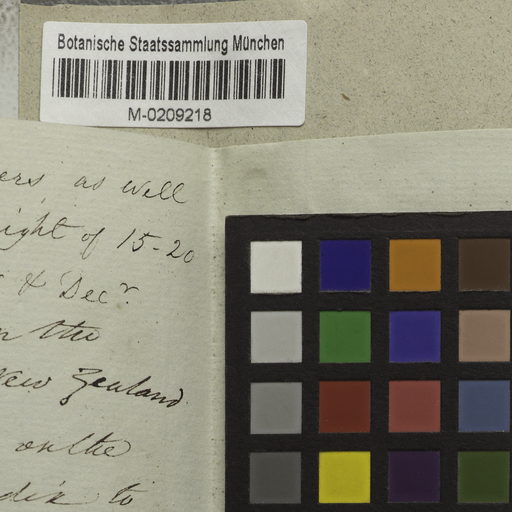 Botanische Staatssammlung München
M-0209218
ers, as well
ight of 15-20
& Decr.
n the
New Zealand
on the
dix to